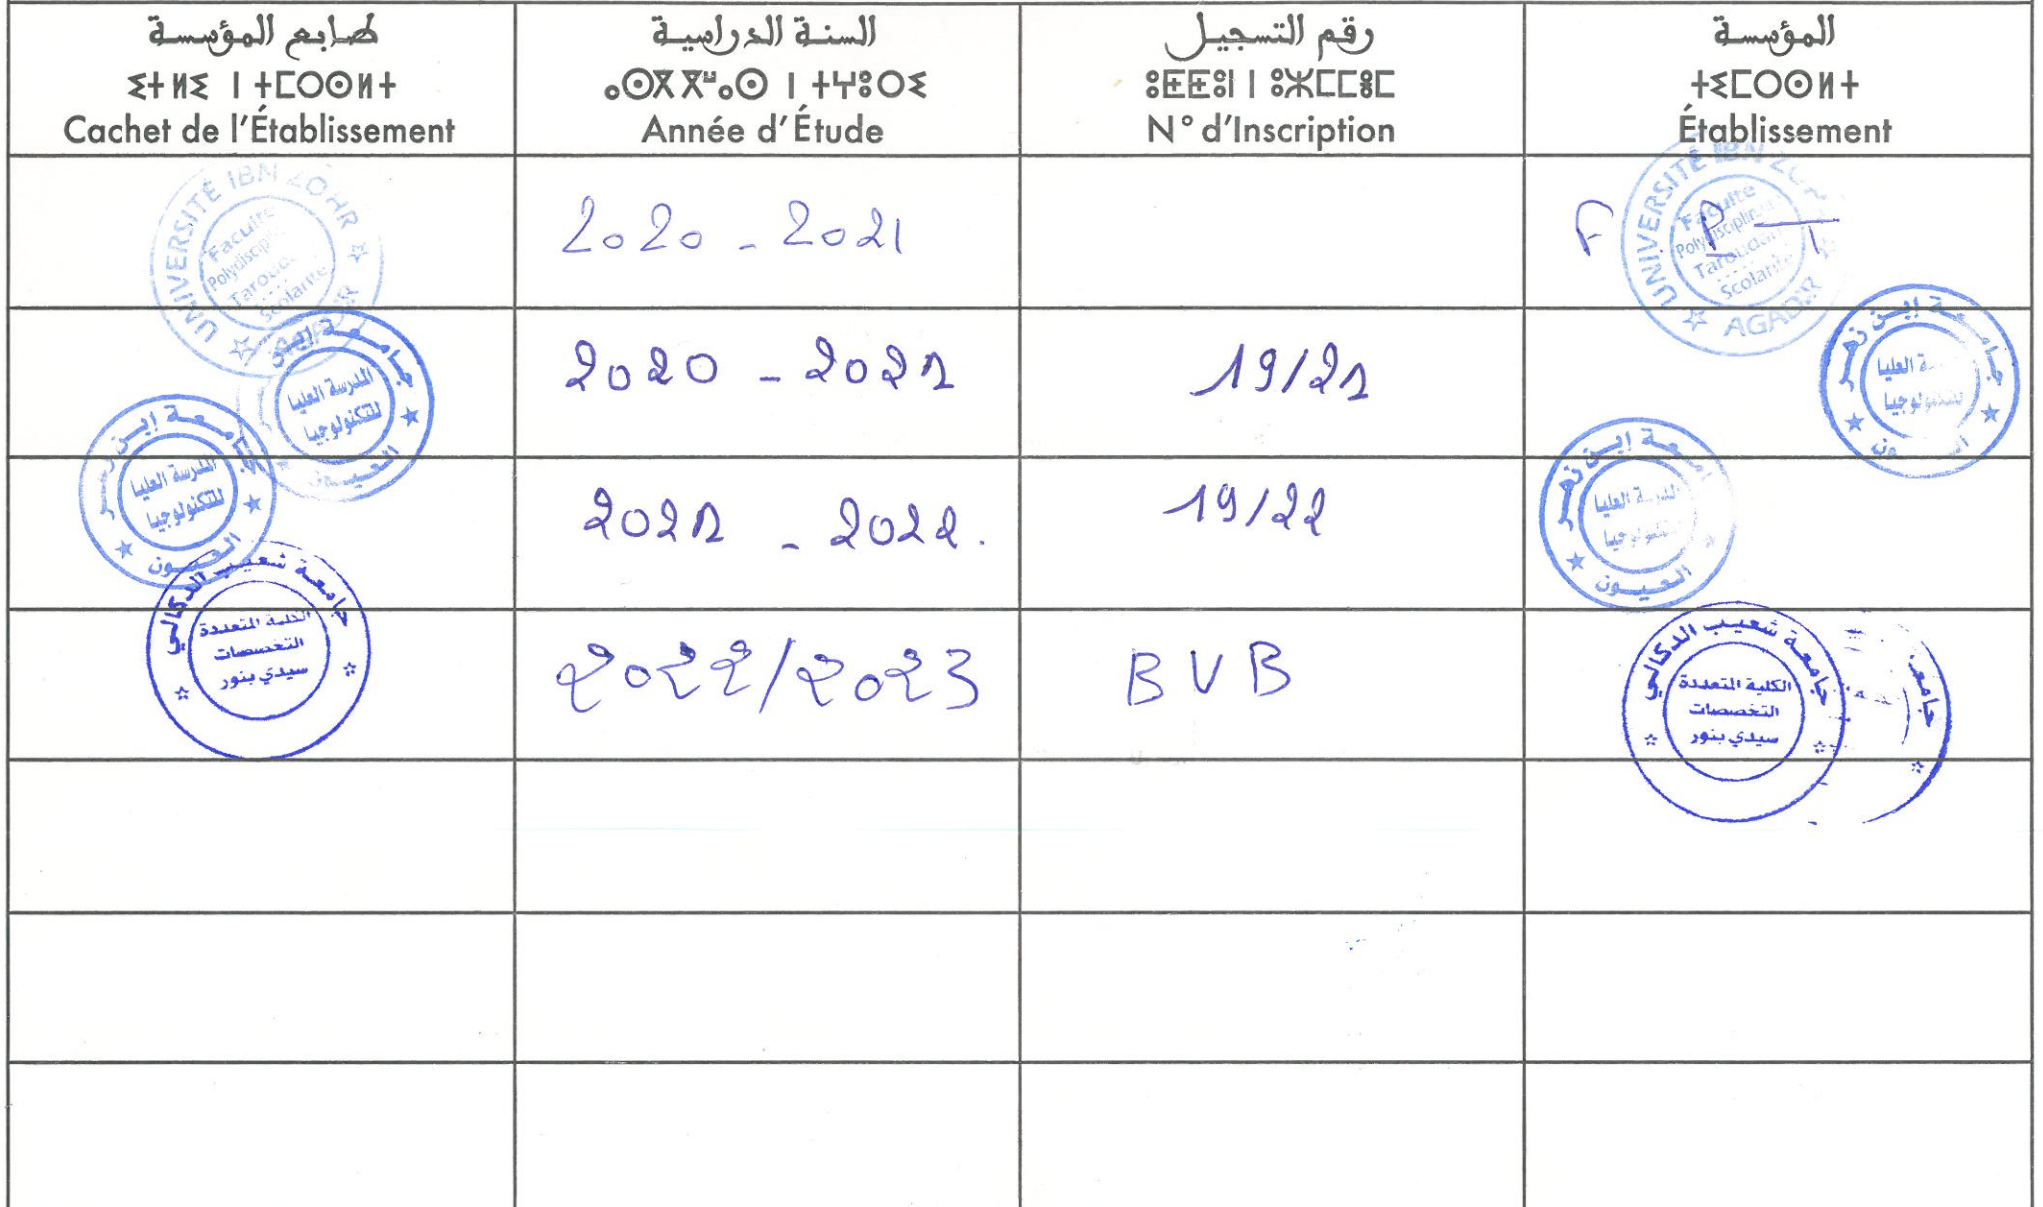 طابع المؤسسة
ⵉⵜⵍⵉ ⵏ ⵜⵎⵔⵙⵍⵜ
Cachet de l'Établissement
السنة الدراسية
ⴰⵙⴳⴳⵯⴰⵙ ⵏ ⵜⵖⵓⵔⵉ
Année d'Étude
رقم التسجيل
ⵓⵟⵟⵓⵏ ⵏ ⵓⵣⵎⵎⵓⵎ
N° d'Inscription
المؤسسة
ⵜⵉⵎⵔⵙⵍⵜ
Établissement
UNIVERSITÉ IBN ZOHR
Faculté
Polydisciplin
Taroudan
Scolarité
2020 - 2021
F P T
UNIVERSITÉ IBN ZOHR
Faculté
Polydisciplin
Taroudan
Scolarité
AGADIR
المدرسة العليا
للتكنولوجيا
العيون
2020 - 2021
19/21
جامعة ابن زهر
العليا
للتكنولوجيا
جامعة ابن زهر
المدرسة العليا
للتكنولوجيا
العيون
2021 - 2022.
19/22
جامعة ابن زهر
المدرسة العليا
للتكنولوجيا
العيون
جامعة شعيب الدكالي
الكلية المتعددة
التخصصات
سيدي بنور
2022/2023
BVB
جامعة شعيب الدكالي
الكلية المتعددة
التخصصات
سيدي بنور
جامعة